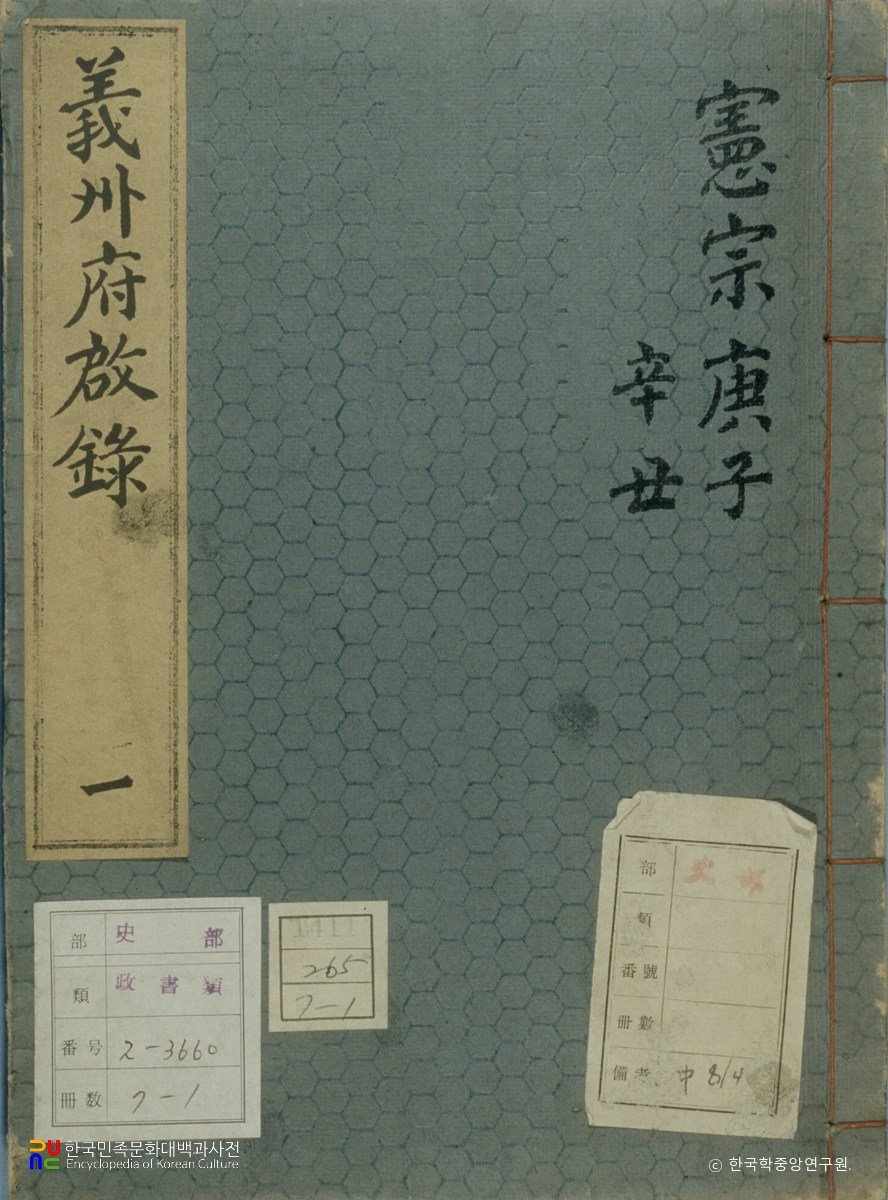 憲宗 庚子
辛丑
義州府啟錄
一
部 史部
類 政書類
番号 2-3660
冊数 7-1
1411
265
7-1
部 史部
類
番號
冊數
備考 中 8/4
한국민족문화대백과사전
Encyclopedia of Korean Culture
© 한국학중앙연구원.